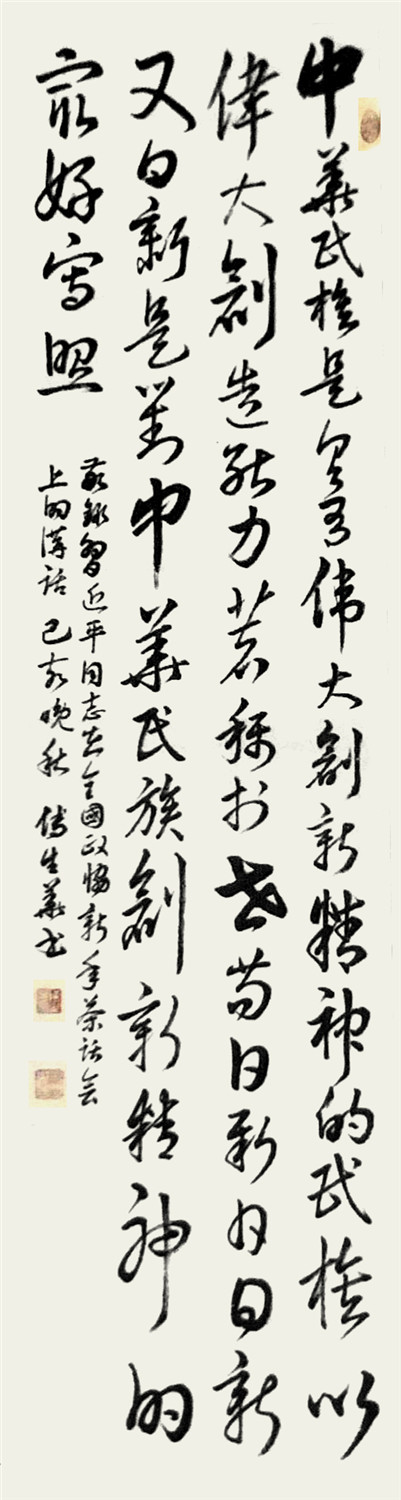 中華民族是具有伟大創新精神的民族以
偉大創造能力著稱於世苟日新日日新
又日新是對中華民族創新精神的
最好寫照
敬錄習近平同志在全國政協新年茶話会
上的講話 己亥晚秋 傅生華书